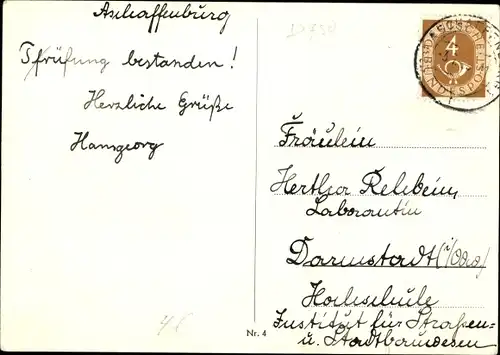 Aschaffenburg
Prüfung bestanden!
Herzliche Grüße
Hansgeorg
4
DEUTSCHE
BUNDESPOST
Fräulein
Hertha Rehbein,
Laborantin
Darmstadt
Hochschule
Institut für Straßen-
u. Stadtbauwesen
Nr. 4